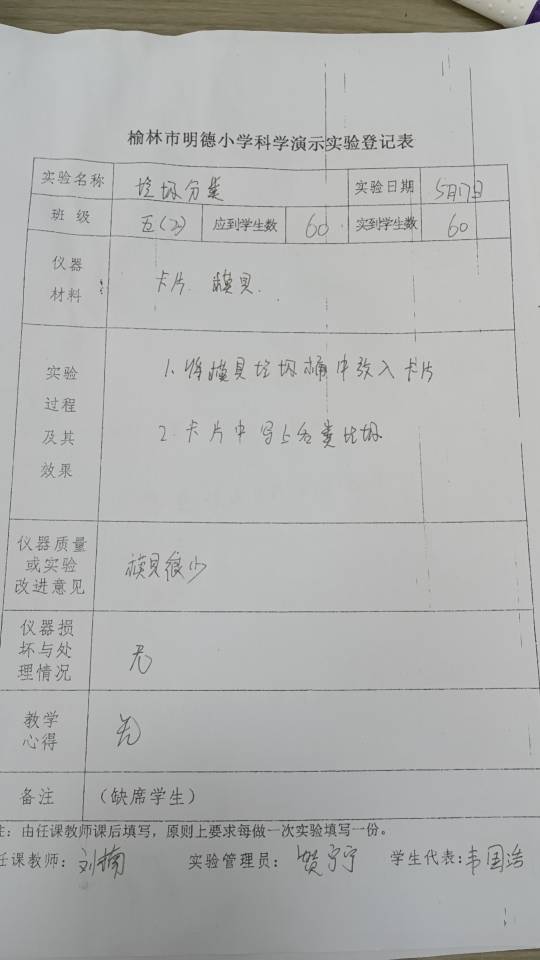 榆林市明德小学科学演示实验登记表
实验名称 垃圾分类 实验日期 5月17日
班 级 五(2) 应到学生数 60 实到学生数 60
仪器
材料
卡片. 模具.
实验
过程
及其
效果
1. 将模具垃圾桶中放入卡片
2. 卡片中写上各类垃圾
仪器质量
或实验
改进意见
模具很少
仪器损
坏与处
理情况
无
教学
心得
无
备注 (缺席学生)
注:由任课教师课后填写,原则上要求每做一次实验填写一份。
任课教师:刘楠 实验管理员:贺宁宁 学生代表:韦国浩